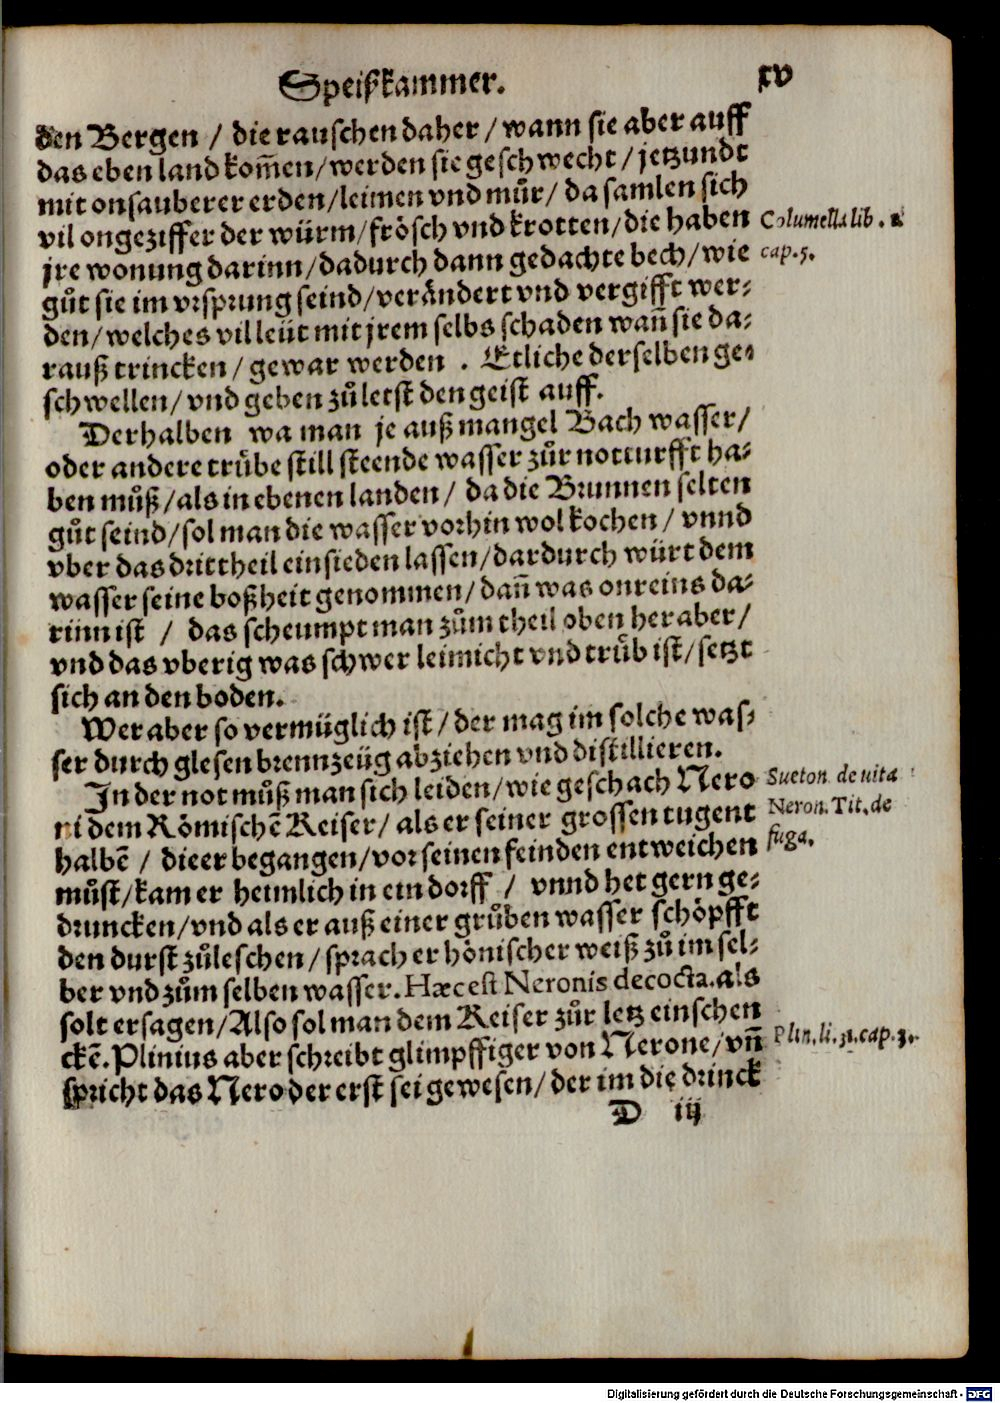 Speißkammer. xv
den Bergen / die rauschen daher / wann sie aber auff
das eben land kom̃en / werden sie geschwecht / jetzundt
mit onsauberer erden / leimen vnd můr / da samlen sich
vil ongeziffer der würm / frösch vnd krotten / die haben
Columella lib. 1.
jre wonung darinn / dadurch dann gedachte bech / wie
cap. 5.
gůt sie im vrsprung seind / verändert vnd vergifft wer⸗
den / welches vil leüt mit jrem selbs schaden wañ sie da⸗
rauß trincken / gewar werden . Etliche derselben ge⸗
schwellen / vnd geben zů letst den geist auff.
Derhalben wa man je auß mangel Bach wasser /
oder andere trůbe still steende wasser zůr notturfft ha⸗
ben můß / als in ebenen landen / da die Brunnen selten
gůt seind / sol man die wasser vorhin wol kochen / vnnd
vber das drittheil einsieden lassen / dardurch würt dem
wasser seine boßheit genommen / dañ was onreins da⸗
rinn ist / das scheumpt man zům theil oben heraber /
vnd das vberig was schwer leimicht vnd trůb ist / setzt
sich an den boden.
Wer aber so vermüglich ist / der mag im solche was⸗
ser durch glesen brennzeüg abziehen vnd distillieren.
In der not můß man sich leiden / wie geschach Nero
Sueton. de uita
ni dem Römischẽ Keiser / als er seiner grossen tugent
Neron. Tit. de
halbẽ / die er begangen / vor seinen feinden entweichen
fuga.
můst / kam er heimlich in ein dorff / vnnd het gern ge⸗
druncken / vnd als er auß einer grůben wasser schöpfft
den durst zůleschen / sprach er hönischer weiß zů im sel⸗
ber vnd zům selben wasser. Hæc est Neronis decocta. als
solt er sagen / Also sol man dem Keiser zůr letz einschen
ckẽ. Plinius aber schreibt glimpffiger von Nerone / vñ
Plin. li. 31. cap. 3.
spricht das Nero der erst sei gewesen / der im die drinck
D iij
Digitalisierung gefördert durch die Deutsche Forschungsgemeinschaft - DFG